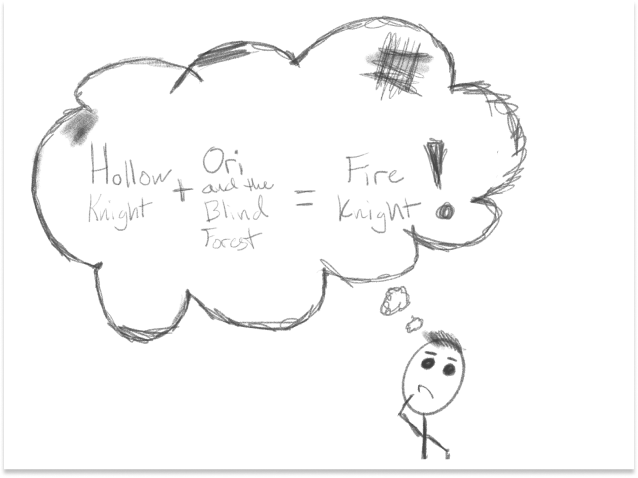 Hollow
Knight
+
Ori
and the
Blind
Forest
=
Fire
Knight
!